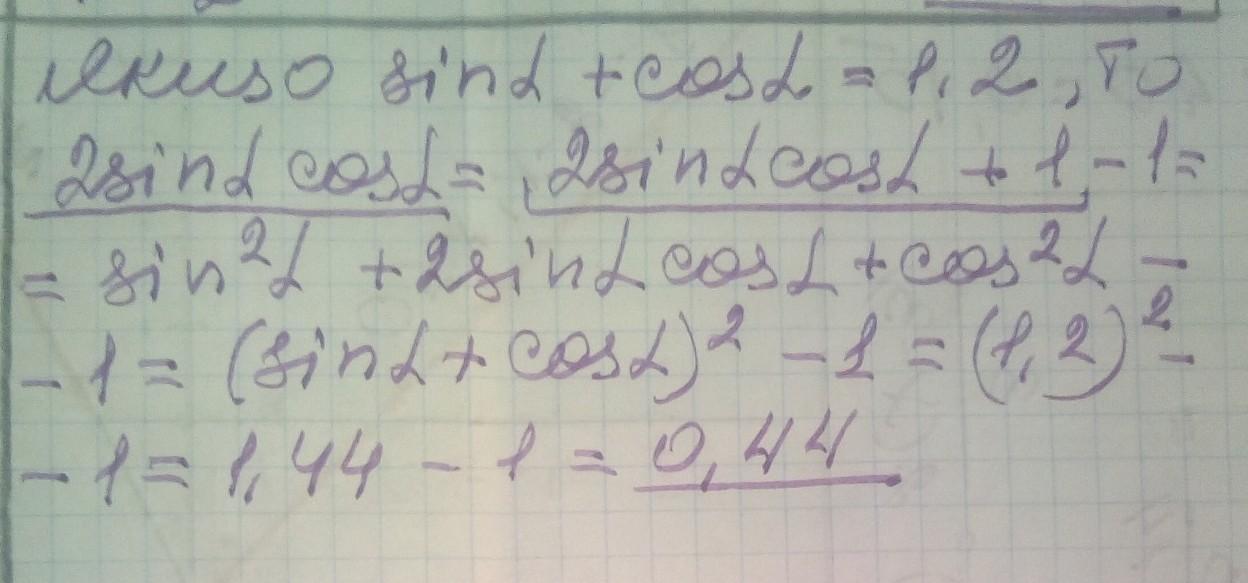 Якщо sinα + cosα = 1,2, то
2sinα cosα = 2sinα cosα + 1 - 1 =
= sin²α + 2sinα cosα + cos²α -
- 1 = (sinα + cosα)² - 1 = (1,2)² -
- 1 = 1,44 - 1 = 0,44